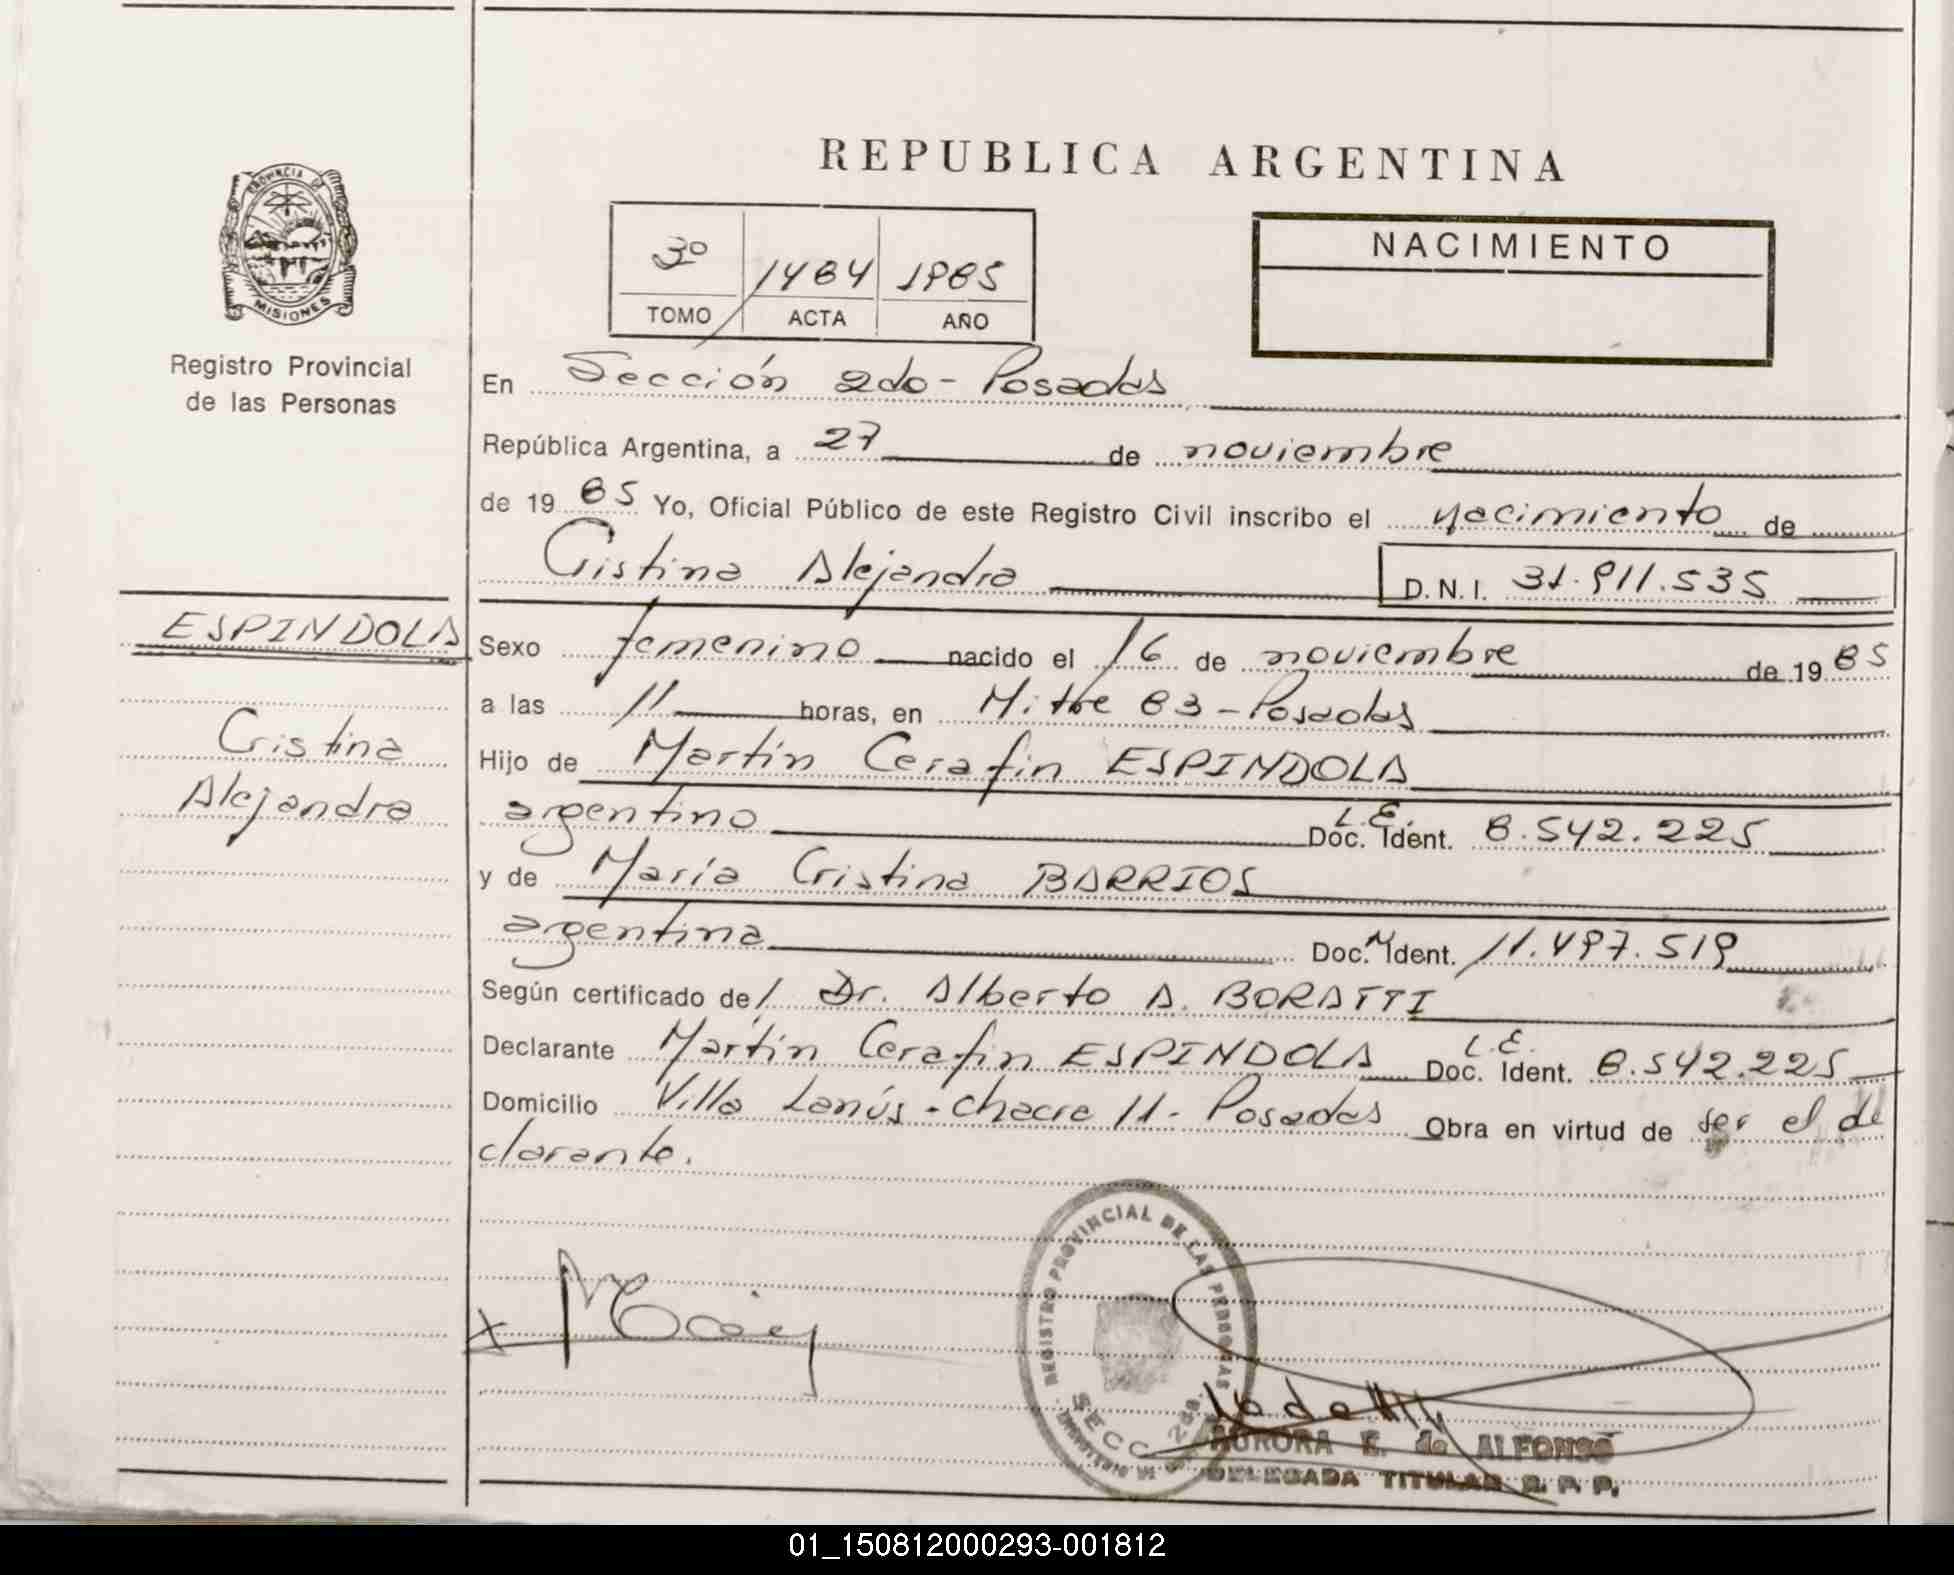 REPUBLICA ARGENTINA
PROVINCIA DE
MISIONES
Registro Provincial
de las Personas
3º 1484 1985
TOMO ACTA AÑO
NACIMIENTO
En Sección 2do - Posadas
República Argentina, a 27 de noviembre
de 19 85 Yo, Oficial Público de este Registro Civil inscribo el nacimiento de
Cristina Alejandra D.N.I. 31.911.535
ESPINDOLA
Cristina
Alejandra
Sexo femenino nacido el 16 de noviembre de 19 85
a las 11 horas, en Mitre 83 - Posadas
Hijo de Martín Cerafin ESPINDOLA
argentino L.E. Doc. Ident. 8.542.225
y de María Cristina BARRIOS
argentina Doc. Ident. 11.497.519
Según certificado de Dr. Alberto A. BORATTI
Declarante Martín Cerafin ESPINDOLA L.E. Doc. Ident. 8.542.225
Domicilio Villa Lanús - chacra 11 - Posadas Obra en virtud de ser el de
clarante.
REGISTRO PROVINCIAL DE LAS PERSONAS
SECC. 2da.
AURORA E. de ALFONSO
DELEGADA TITULAR R. P. P.
01_150812000293-001812